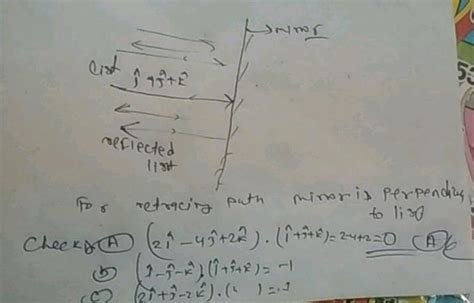 mirror
list
î+ĵ+k̂
reflected
list
For retracing path mirror is perpendicular
to list
Checks (A) (2î-4ĵ+2k̂).(î+ĵ+k̂)=2-4+2=0 (A)
(b) (î-ĵ-k̂)(î+ĵ+k̂)= -1
(c) (2î+ĵ-2k̂).(
53